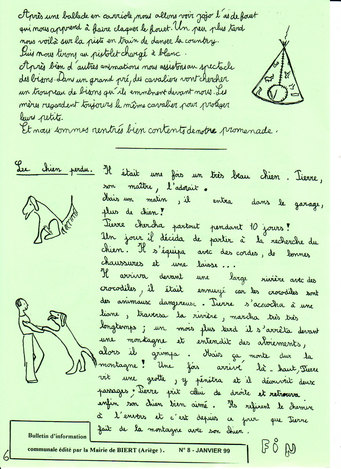 Après une ballade en carriole, nous allons voir Jojo l'as de fouet
qui nous apprend à faire claquer le fouet. Un peu plus tard
nous voilà sur la piste en train de danser la country.
Puis nous tirons au pistolet chargé à blanc.
Après bien d'autres animations nous assistons au spectacle
des bisons. Dans un grand pré, des cavaliers vont chercher
un troupeau de bisons qu'ils emmènent devant nous. Les
mères regardent toujours le même cavalier pour protéger
leurs petits.
Et nous sommes rentrés bien contents de notre promenade.
Le chien perdu.
Il était une fois un très beau chien. Pierre,
son maître, l'adorait.
Mais un matin, il entra dans le garage,
plus de chien!
Pierre chercha partout pendant 10 jours!
Un jour il décida de partir à la recherche du
chien. Il s'équipa avec des cordes, de bonnes
chaussures et une laisse...
Il arriva devant une large rivière avec des
crocodiles, il était ennuyé car les crocodiles sont
des animaux dangereux. Pierre s'accrocha à une
liane, traversa la rivière, marcha très très
longtemps; un mois plus tard il s'arrêta devant
une montagne et entendit des aboiements,
alors il grimpa. Mais ça monte dur la
montagne! Une fois arrivé là-haut, Pierre
vit une grotte, y pénétra et il découvrit deux
passages; Pierre prit celui de droite et retrouva
enfin son chien bien aimé. Ils refirent le chemin
à l'envers et c'est depuis ce jour que Pierre
fait de la montagne avec son chien.
FIN
Bulletin d'information
communale édité par la Mairie de BIERT (Ariège).
N° 8 - JANVIER 99
6